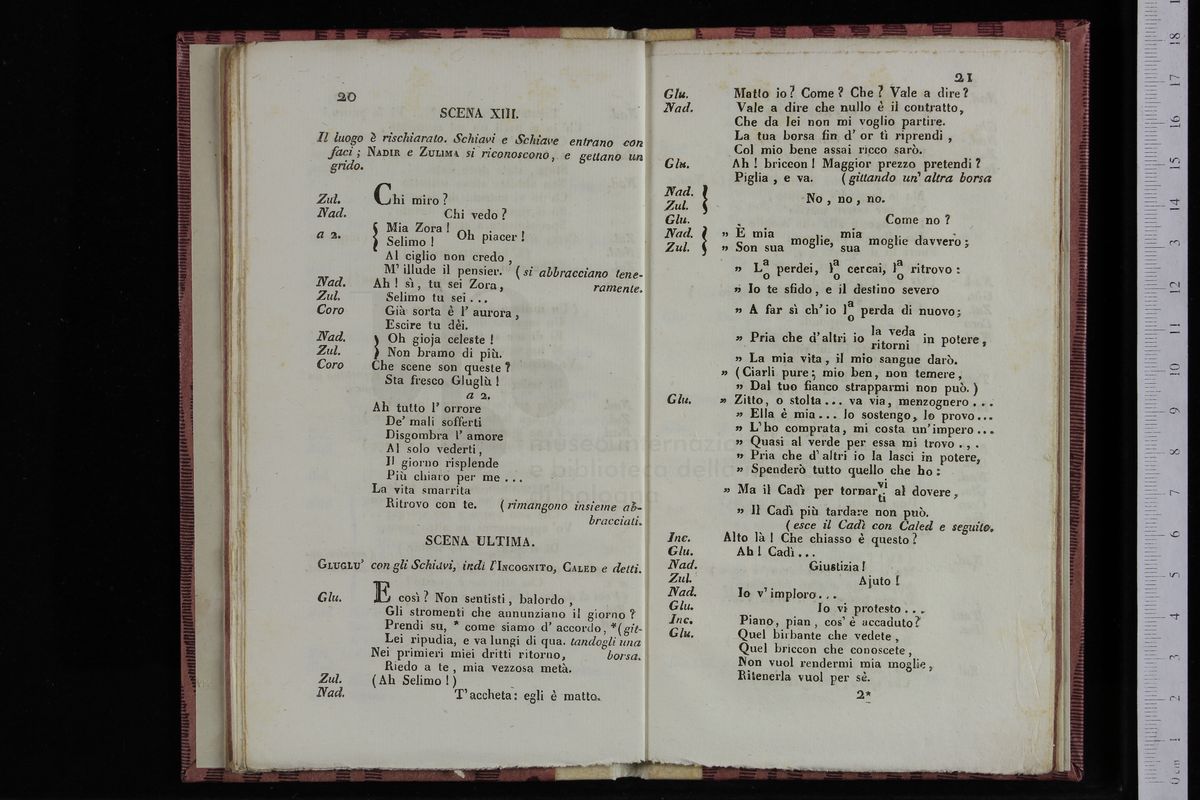 20
SCENA XIII.
Il luogo è rischiarato. Schiavi e Schiave entrano con
faci; NADIR e ZULIMA si riconoscono, e gettano un
grido.
Zul. Chi miro?
Nad. Chi vedo?
a 2. { Mia Zora! Oh piacer!
Selimo!
Al ciglio non credo,
M' illude il pensier. (si abbracciano tene-
Nad. Ah! sì, tu sei Zora, ramente.
Zul. Selimo tu sei...
Coro Già sorta è l' aurora,
Escire tu dèi.
Nad. } Oh gioja celeste!
Zul. } Non bramo di più.
Coro Che scene son queste?
Sta fresco Gluglù!
a 2.
Ah tutto l' orrore
De' mali sofferti
Disgombra l' amore
Al solo vederti,
Il giorno risplende
Più chiaro per me...
La vita smarrita
Ritrovo con te. (rimangono insieme ab-
bracciati.
SCENA ULTIMA.
GLUGLU' con gli Schiavi, indi l'INCOGNITO, CALED e detti.
Glu. E così? Non sentisti, balordo,
Gli stromenti che annunziano il giorno?
Prendi su, * come siamo d' accordo, *(git-
Lei ripudia, e va lungi di qua. tandogli una
Nei primieri miei dritti ritorno, borsa.
Riedo a te, mia vezzosa metà.
Zul. (Ah Selimo!)
Nad. T' accheta: egli è matto.
21
Glu. Matto io? Come? Che? Vale a dire?
Nad. Vale a dire che nullo è il contratto,
Che da lei non mi voglio partire.
La tua borsa fin d' or ti riprendi,
Col mio bene assai ricco sarò.
Glu. Ah! briccon! Maggior prezzo pretendi?
Piglia, e va. (gittando un' altra borsa
Nad. }
Zul. } No, no, no.
Glu. Come no?
Nad. } » È mia moglie, mia moglie davvero;
Zul. } » Son sua sua
» La perdei, la cercai, la ritrovo:
o o o
» Io te sfido, e il destino severo
» A far sì ch' io la perda di nuovo;
o
» Pria che d'altri io la veda in potere,
ritorni
» La mia vita, il mio sangue darò.
» (Ciarli pure; mio ben, non temere,
» Dal tuo fianco strapparmi non può.)
Glu. » Zitto, o stolta... va via, menzognero...
» Ella è mia... lo sostengo, lo provo...
» L' ho comprata, mi costa un' impero...
» Quasi al verde per essa mi trovo...
» Pria che d' altri io la lasci in potere,
» Spenderò tutto quello che ho:
» Ma il Cadì per tornarvi al dovere,
ti
» Il Cadì più tardare non può.
(esce il Cadì con Caled e seguito.
Inc. Alto là! Che chiasso è questo?
Glu. Ah! Cadì...
Nad. Giustizia!
Zul. Ajuto!
Nad. Io v' imploro...
Glu. Io vi protesto...
Inc. Piano, pian, cos' è accaduto?
Glu. Quel birbante che vedete,
Quel briccon che conoscete,
Non vuol rendermi mia moglie,
Ritenerla vuol per sè.
2*